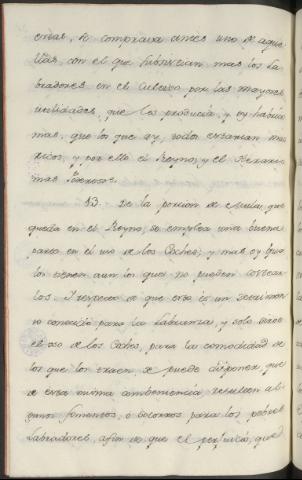 endas, se comprava antes uno de aque
llas, con el que subsistian mas los La
bradores en el cultivo por las mayores
utilidades, que les producia, y oy habria
mas, que los que ay, todos estarian mas
ricos, y por ello el Reyno, y el Herario
mas Poderoso.
13. De la porcion de Mulas, que
queda en el Reyno, se emplea una buena
parte en el uso de los Coches, y mas oy que
los tienen aun los que no pueden costear
los. Y respecto de que esto es un detrimen
to conocido para la Labranza, y solo sirve
el uso de los Coches, para la comodidad de
los que los traen, se puede disponer, que
de esta misma combeniencia, resulten al
gunos fomentos, ó socorros para los pobres
Labradores, afin de que el perjuicio, que